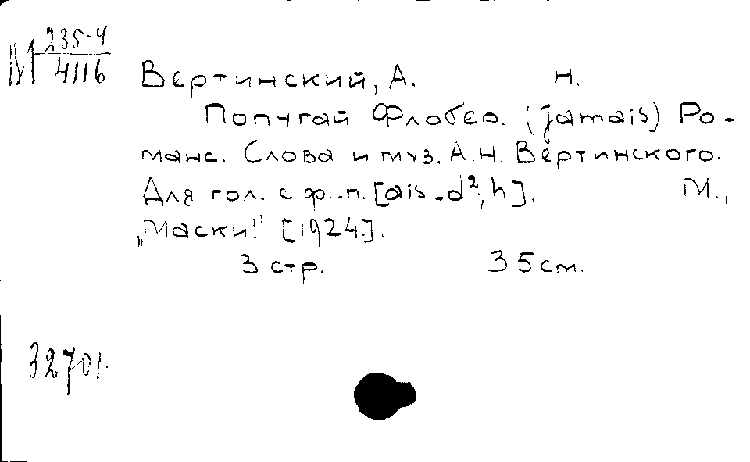 М 235-4
4116
Вертинский, А. Н.
Попугай Флобер. (jamais) Ро-
манс. Слова и муз. А.Н. Вертинского.
Для гол. с ф.-п. [ais-d², h]. М.,
„Маски" [1924].
3 стр. 35 см.
32701.